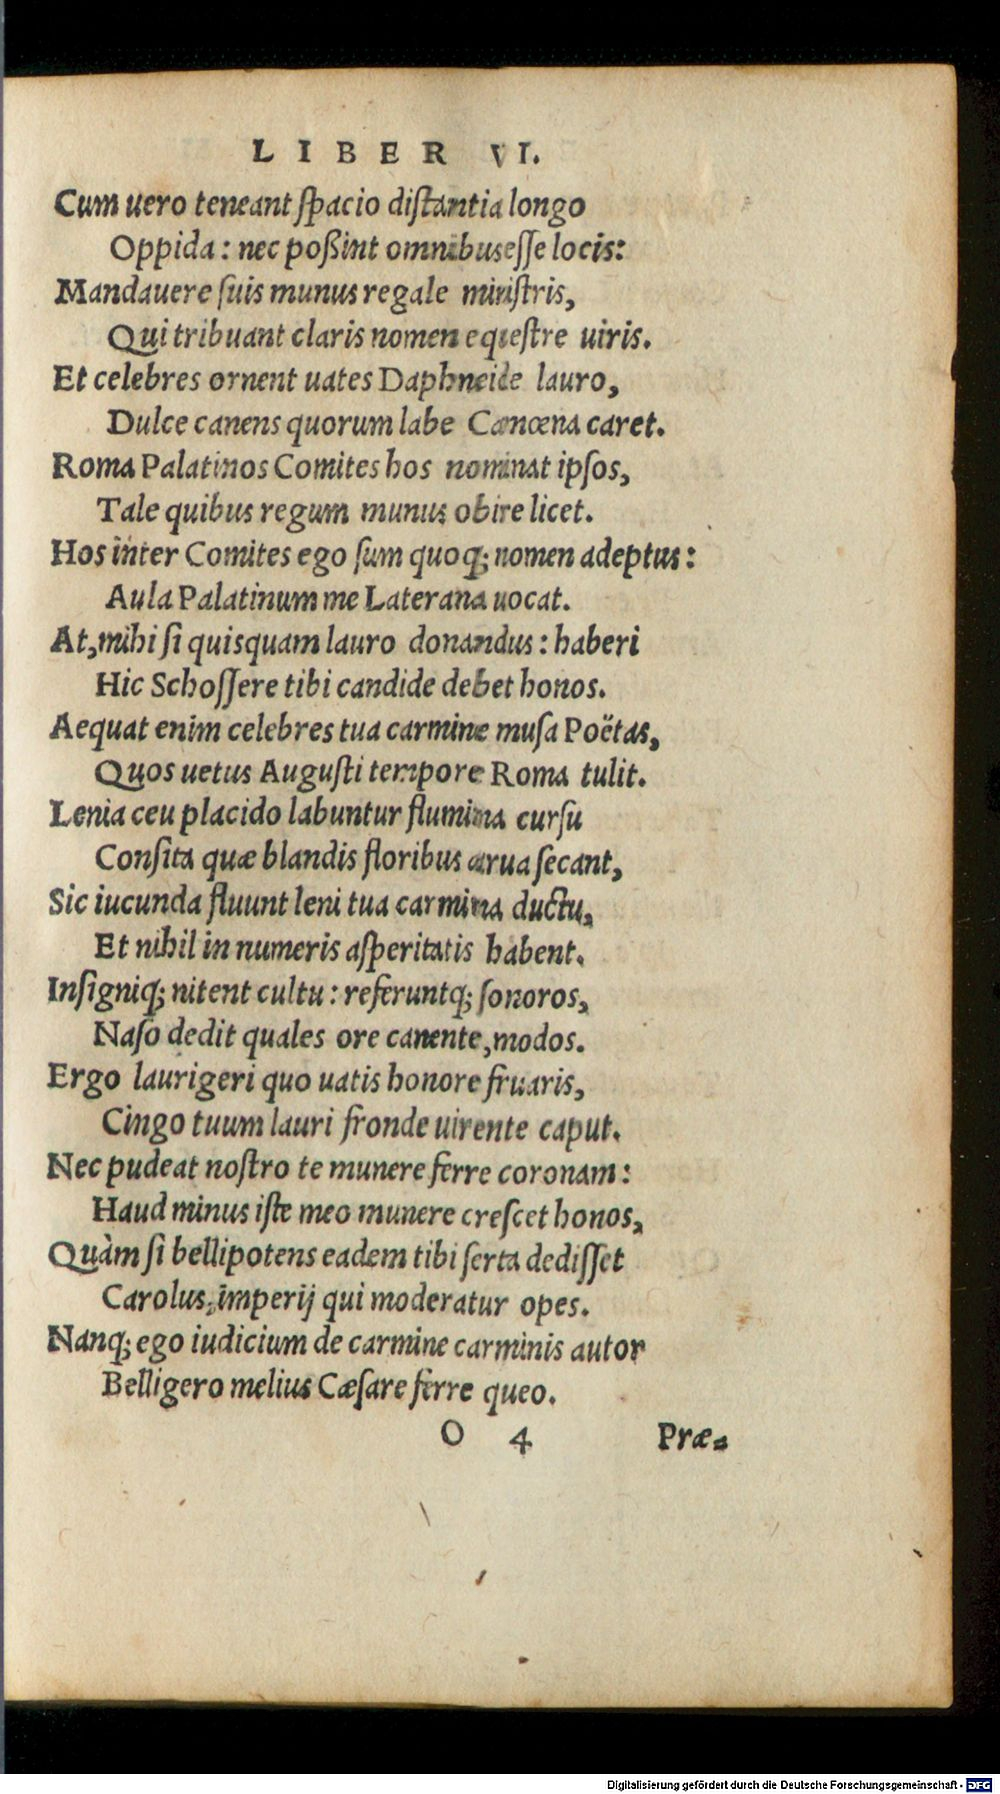 LIBER VI.
Cum uero teneant ſpacio diſtantia longo
Oppida: nec poßint omnibus eſſe locis:
Mandauere ſuis munus regale miniſtris,
Qui tribuant claris nomen equeſtre uiris.
Et celebres ornent uates Daphneide lauro,
Dulce canens quorum labe Camœna caret.
Roma Palatinos Comites hos nominat ipſos,
Tale quibus regum munus obire licet.
Hos inter Comites ego ſum quoq; nomen adeptus:
Aula Palatinum me Laterana uocat.
At, mihi ſi quisquam lauro donandus: haberi
Hic Schoſſere tibi candide debet honos.
Aequat enim celebres tua carmine muſa Poëtas,
Quos uetus Auguſti tempore Roma tulit.
Lenia ceu placido labuntur flumina curſu
Conſita quæ blandis floribus arua ſecant,
Sic iucunda fluunt leni tua carmina ductu,
Et nihil in numeris aſperitatis habent.
Inſigniq; nitent cultu: referuntq; ſonoros,
Naſo dedit quales ore canente, modos.
Ergo laurigeri quo uatis honore fruaris,
Cingo tuum lauri fronde uirente caput.
Nec pudeat noſtro te munere ferre coronam:
Haud minus iſte meo munere creſcet honos,
Quàm ſi bellipotens eadem tibi ſerta dediſſet
Carolus, imperij qui moderatur opes.
Nanq; ego iudicium de carmine carminis autor
Belligero melius Cæſare ferre queo.
O 4 Præ-
Digitalisierung gefördert durch die Deutsche Forschungsgemeinschaft - DFG